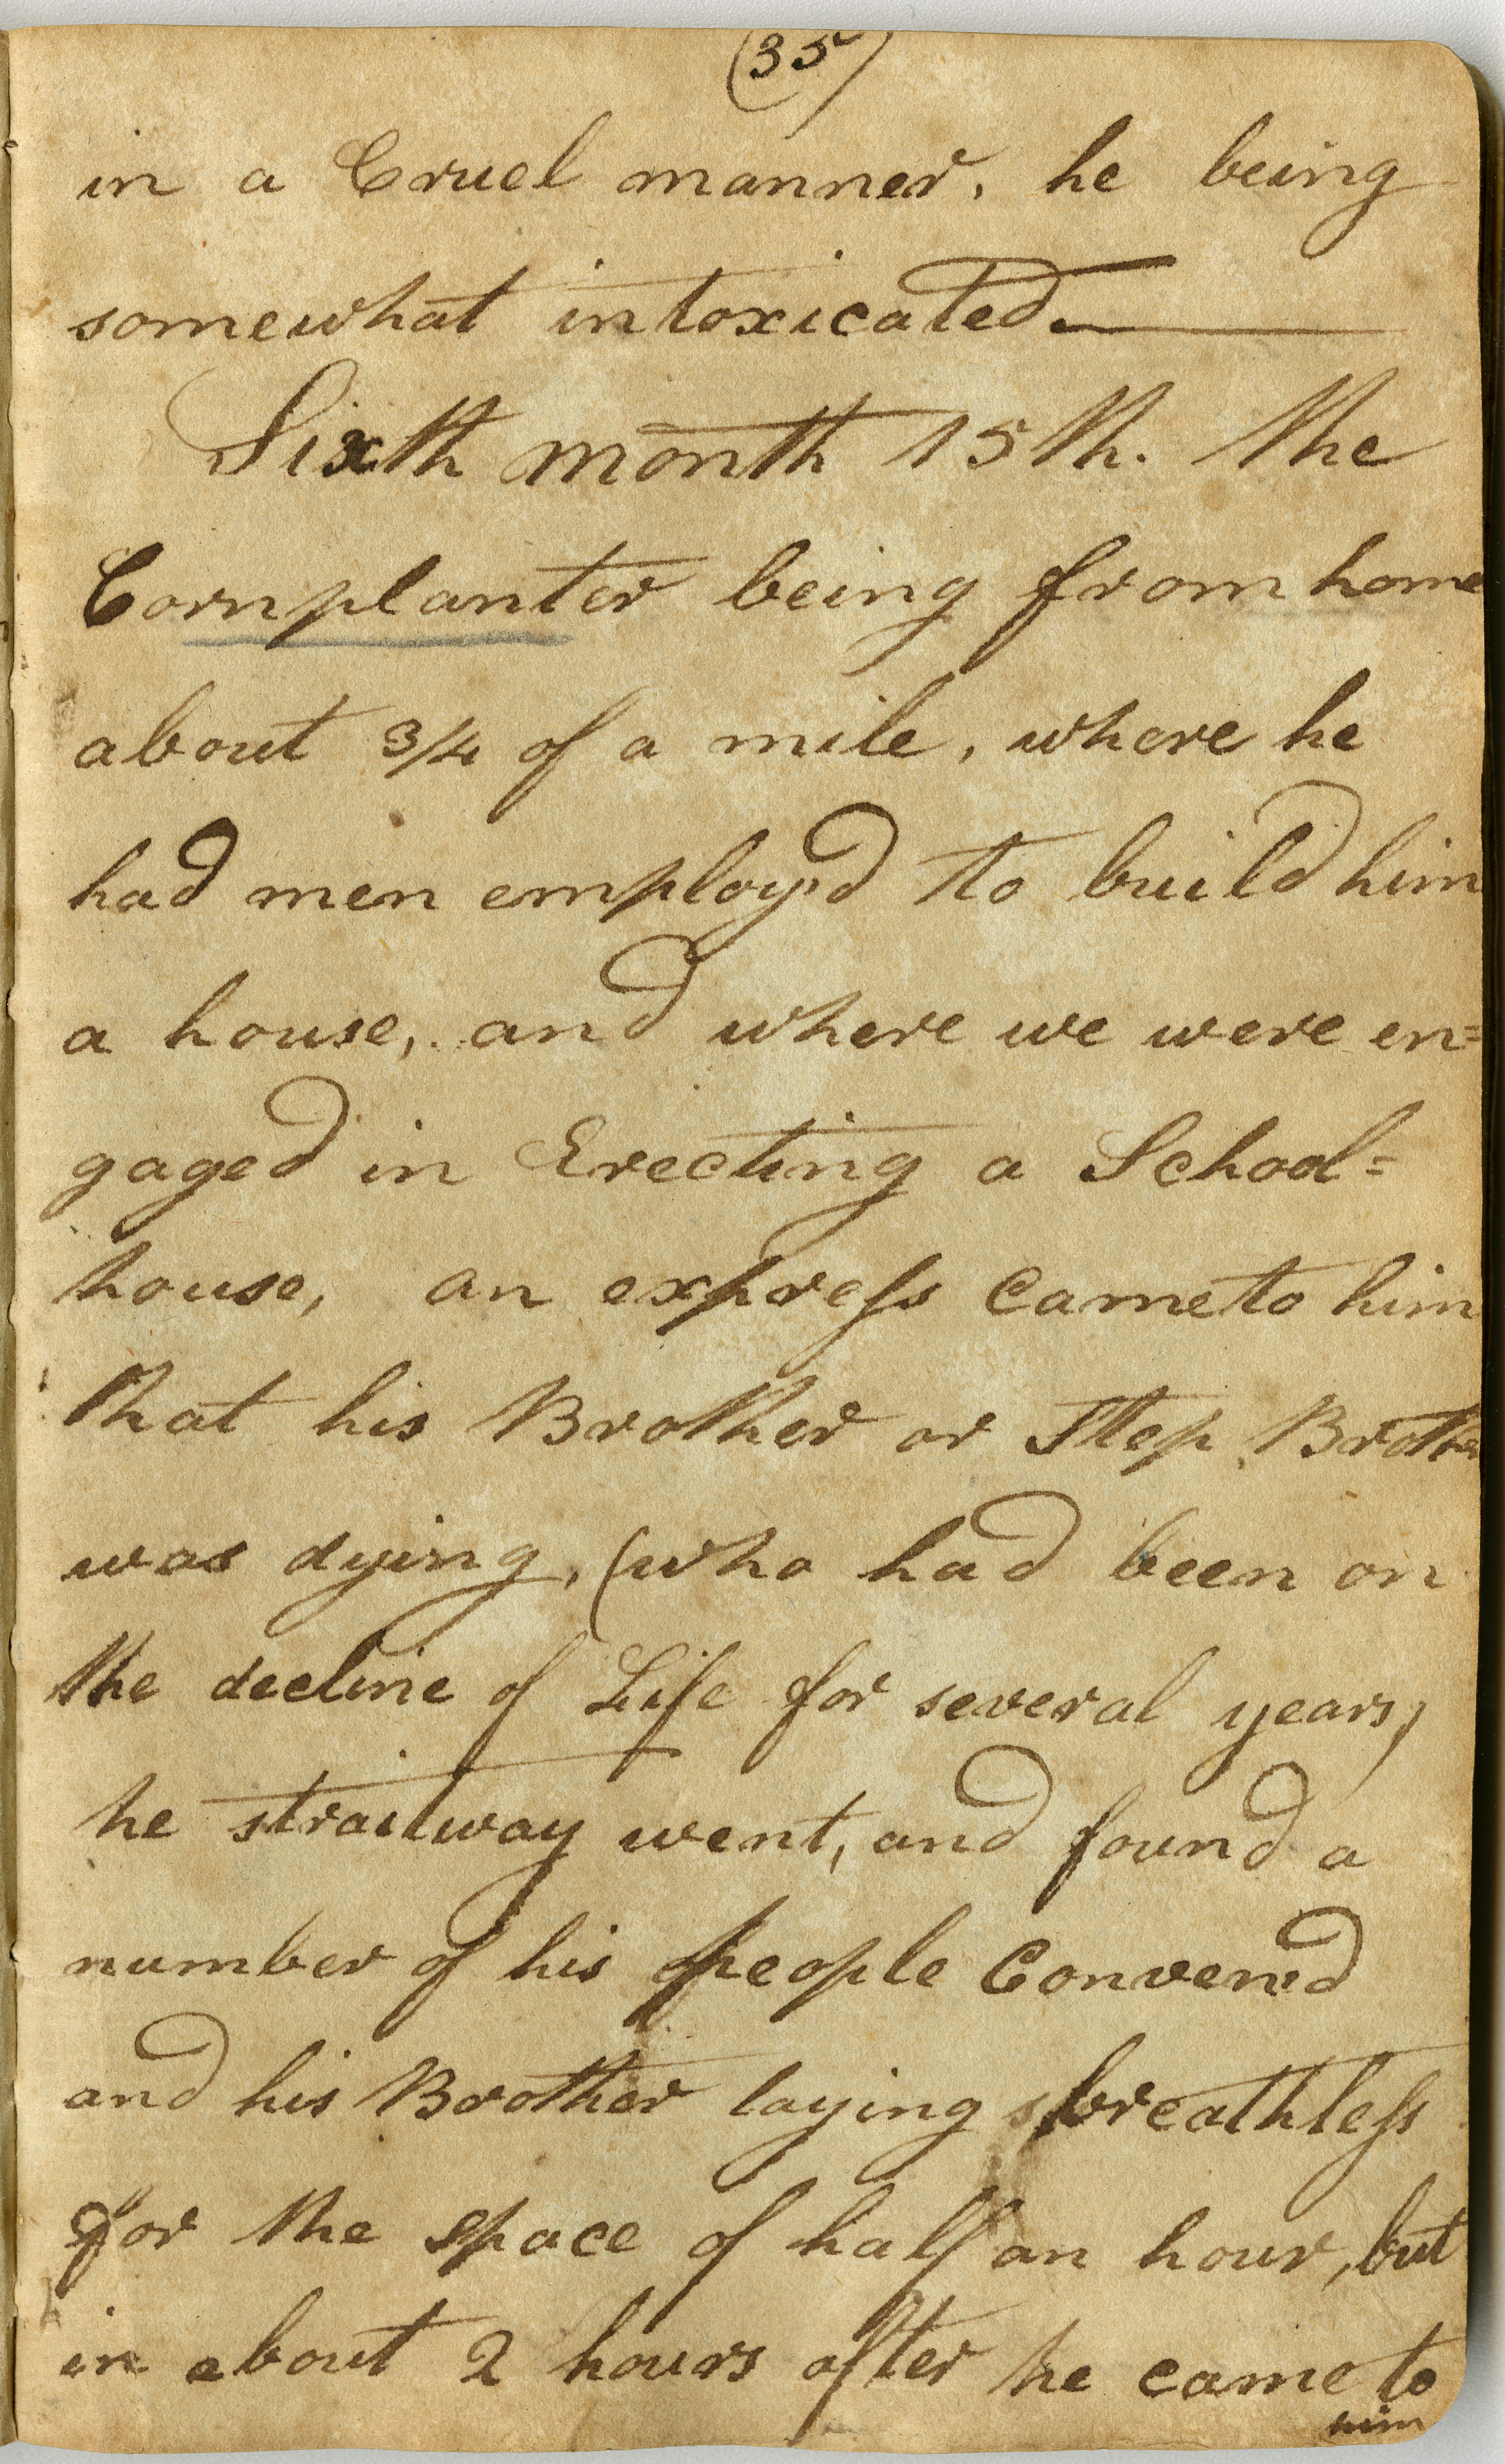 (35)
in a Cruel manner, he being
somewhat intoxicated.
Sixth month 15th. the
Cornplanter being from home
about 3/4 of a mile, where he
had men employ'd to build him
a house, and where we were en=
gaged in Erecting a School=
house, an express came to him
that his Brother or Step Brother
was dying, (who had been on
the decline of Life for several years)
he straitway went, and found a
number of his people Conven'd
and his Brother laying breathless
for the space of half an hour, but
in about 2 hours after he came to
him